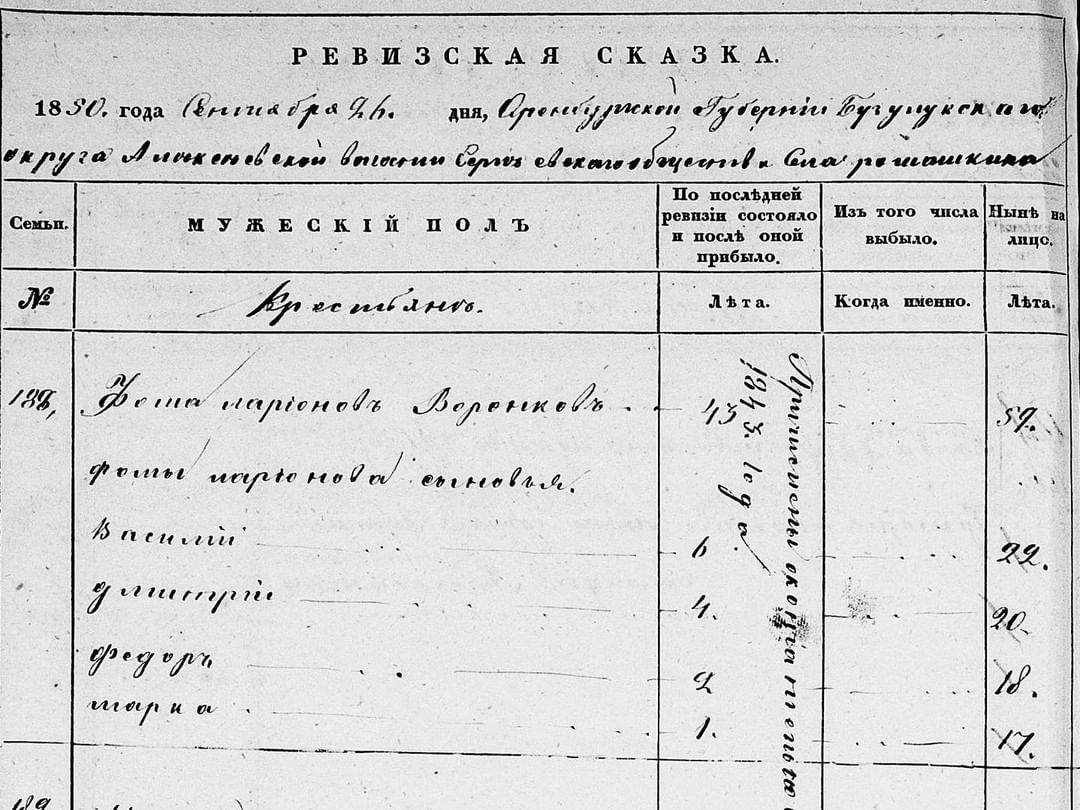 РЕВИЗСКАЯ СКАЗКА.
1850. года Сентября 26. дня, Оренбургской Губерніи Бугулукскаго
округа Алексеевской волости общества
Семьи. МУЖЕСКІЙ ПОЛЪ По послѣдней ревизіи состояло и послѣ оной прибыло. Изъ того числа выбыло. Нынѣ на лицо.
№ Крестьянъ. Лѣта. Когда именно. Лѣта.
188, Фома ларіоновъ Воронковъ 43 59.
фомы ларіонова сыновья.
Василій 6 22.
дмитрій 4. 20
федоръ 2 18.
марка 1. 17.
Причислены окончательно
1843. года
189